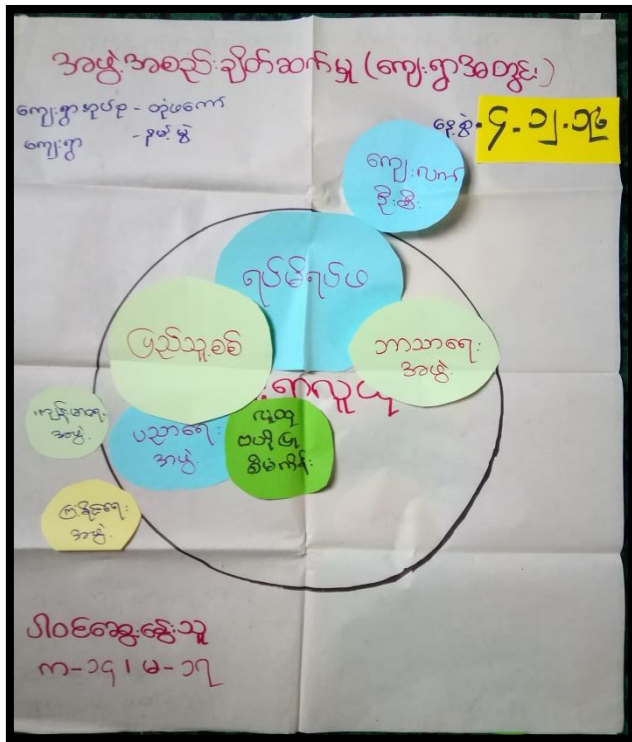 အဖွဲ့အစည်းချိတ်ဆက်မှု (ကျေးရွာအတွင်း)
ကျေးရွာအုပ်စု - တုံဖကော်
ကျေးရွာ - နမ့်မွဲ
နေ့စွဲ - ၄-၁၂-၁၆
ကျေးလက်
ဦးစီး
ရပ်မိရပ်ဖ
ပြည်သူ့စစ်
ဘာသာရေး
အဖွဲ့
ရွာလူထု
ကျန်းမာရေး
အဖွဲ့
ပညာရေး
အဖွဲ့
လူထု
ဗဟိုပြု
စီမံကိန်း
အဖွဲ့
ပါဝင်ဆွေးနွေးသူ
က-၁၄ ၊ မ-၁၇